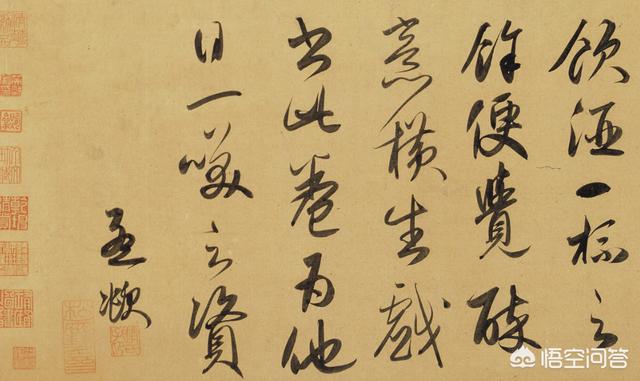 飲酒一杯之
餘便覺醉
意橫生戲
書此卷為他
日一咲之資
孟頫
悟空问答